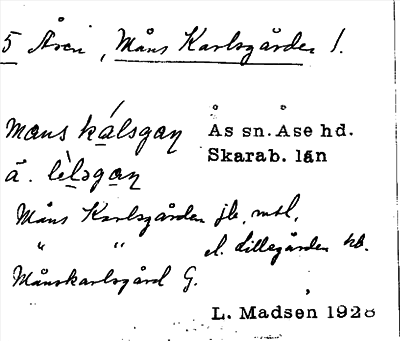 5 Åsen, Måns Karlsgården 1.
Ås sn. Åse hd.
Skarab. län
mans kálsgaŋ
ä. lèlsgaŋ
Måns Karlsgården jb, mtl,
" " el. Lillegården kb.
Månskarlsgård G.
L. Madsen 1928